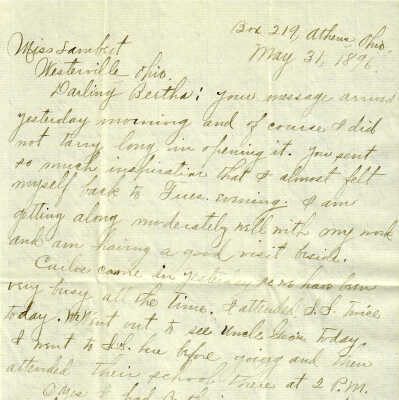 Box 219, Athens, Ohio.
May 31, 1896.
Miss Lambert
Westerville Ohio.
Darling Bertha: Your message arrived
yesterday morning and of course I did
not tarry long in opening it. You sent
so much inspiration that I almost felt
myself back to Tues. evening. I am
getting along moderately well with my work
and am having a good visit beside.
Carlos came in yesterday so we have been
very busy all the time. I attended S.S. twice
today. We went out to see Uncle today.
I went to S.S. here before going and then
attended their school there at 2 P.M.
I had